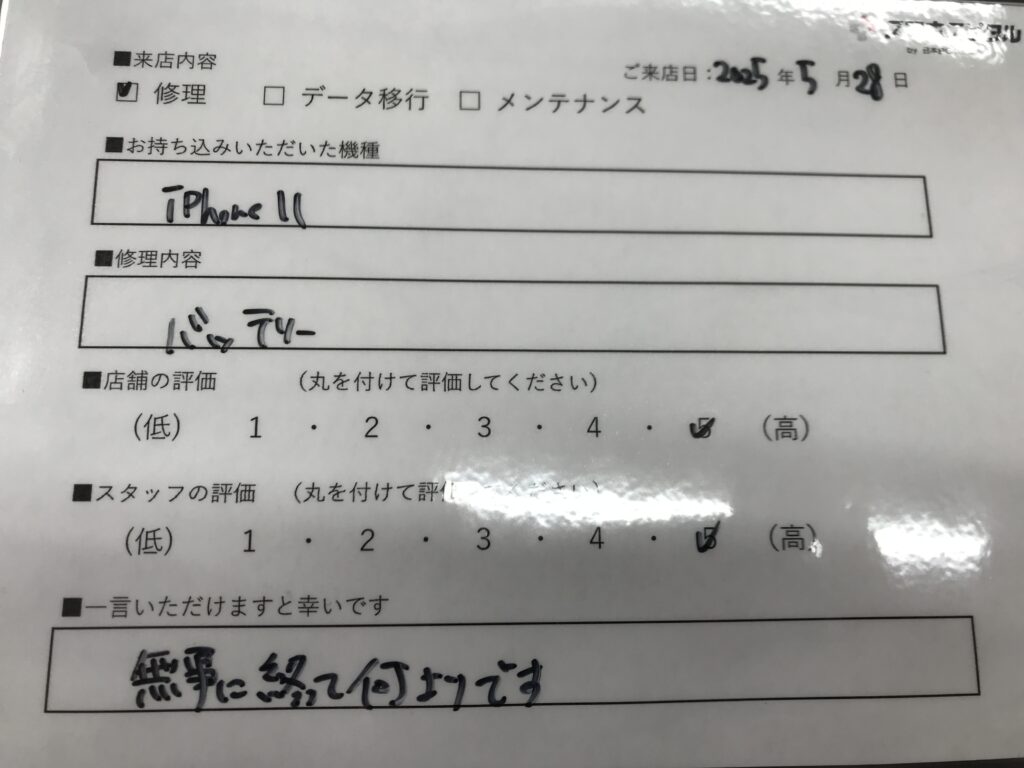 ■来店内容
ご来店日：2025年5月28日
☑ 修理 □ データ移行 □ メンテナンス
■お持ち込みいただいた機種
iPhone 11
■修理内容
バッテリー
■店舗の評価 （丸を付けて評価してください）
（低） 1 ・ 2 ・ 3 ・ 4 ・ 5 （高）
■スタッフの評価 （丸を付けて評価してください）
（低） 1 ・ 2 ・ 3 ・ 4 ・ 5 （高）
■一言いただけますと幸いです
無事に終って何よりです